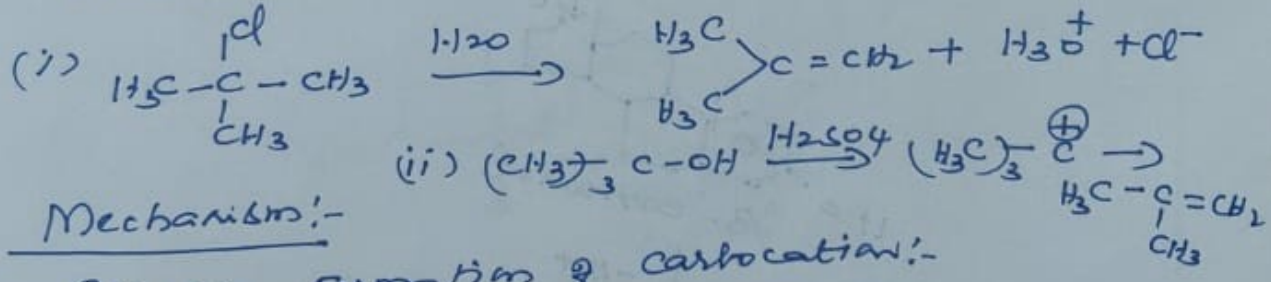 (i) H3C-C(Cl)(CH3)-CH3 —H2O→ H3C, H3C >C=CH2 + H3O+ + Cl-
(ii) (CH3)3 C-OH —H2SO4→ (H3C)3-C⊕ → H3C-C(CH3)=CH2
Mechanism:-
carbocation:-